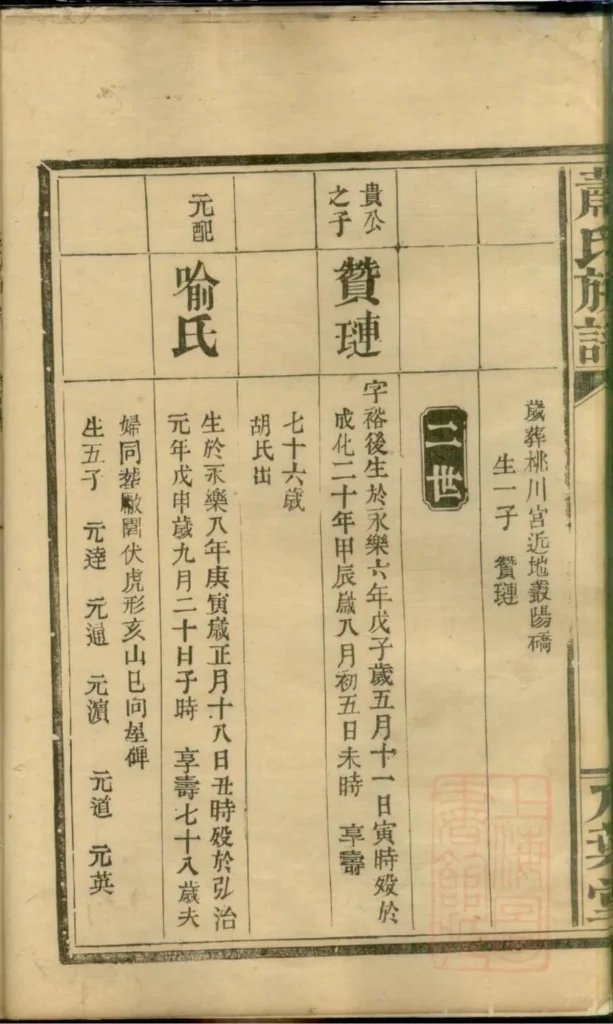 蕭氏族譜
八葉堂
歲葬桃川宮近地叢陽礄
生一子 贊璉
二世
貴公
之子
贊璉
字裕後生於永樂六年戊子歲五月十一日寅時殁於
成化二十年甲辰歲八月初五日未時 享壽
七十六歲
胡氏出
元配
喻氏
生於永樂八年庚寅歲正月十八日丑時殁於弘治
元年戊申歲九月二十日子時 享壽七十八歲夫
婦同塟廠園伏虎形亥山巳向壆碑
生五子 元達 元通 元濵 元道 元英